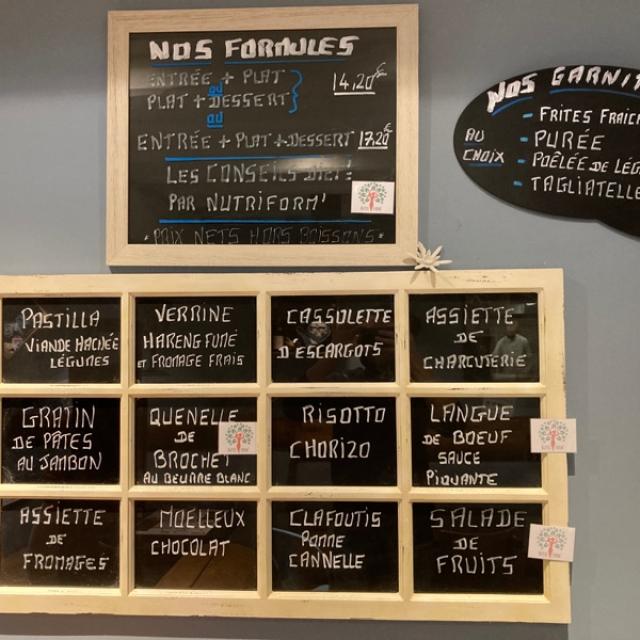 NOS FORMULES
ENTRÉE + PLAT
ou
PLAT + DESSERT
14,20€
ou
ENTRÉE + PLAT + DESSERT 17,20€
LES CONSEILS DIET:
PAR NUTRIFORM'
*PRIX NETS HORS BOISSONS*
NOS GARNIT
AU CHOIX
- FRITES FRAICH
- PURÉE
- POÊLÉE DE LÉG
- TAGLIATELLE
PASTILLA
VIANDE HACHÉE
LÉGUMES
VERRINE
HARENG FUMÉ
ET FROMAGE FRAIS
CASSOLETTE
D'ESCARGOTS
ASSIETTE
DE
CHARCUTERIE
GRATIN
DE PÂTES
AU JAMBON
QUENELLE
DE
BROCHET
AU BEURRE BLANC
RISOTTO
CHORIZO
LANGUE
DE BOEUF
SAUCE
PIQUANTE
ASSIETTE
DE
FROMAGES
MOELLEUX
CHOCOLAT
CLAFOUTIS
POMME
CANNELLE
SALADE
DE
FRUITS